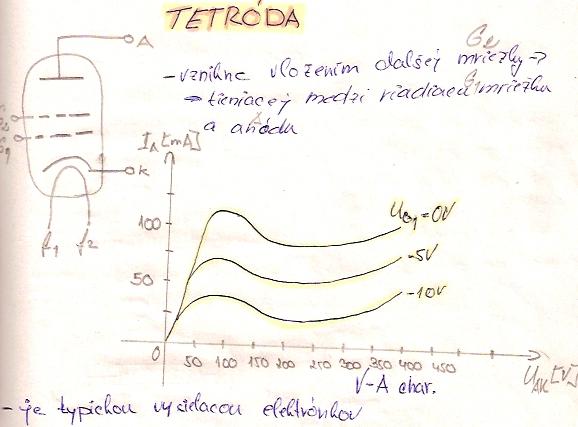 TETRÓDA
A
G2
- vznikne vložením ďalšej mriežky →
→ tieniacej medzi riadiacu G1 mriežku
a anódu
A
g2
g1
k
f1 f2
IA [mA]
100
50
0
50 100 150 200 250 300 350 400 450
UG1=0V
-5V
-10V
UAK [V]
V-A char.
- je typickou vysielacou elektrónkov